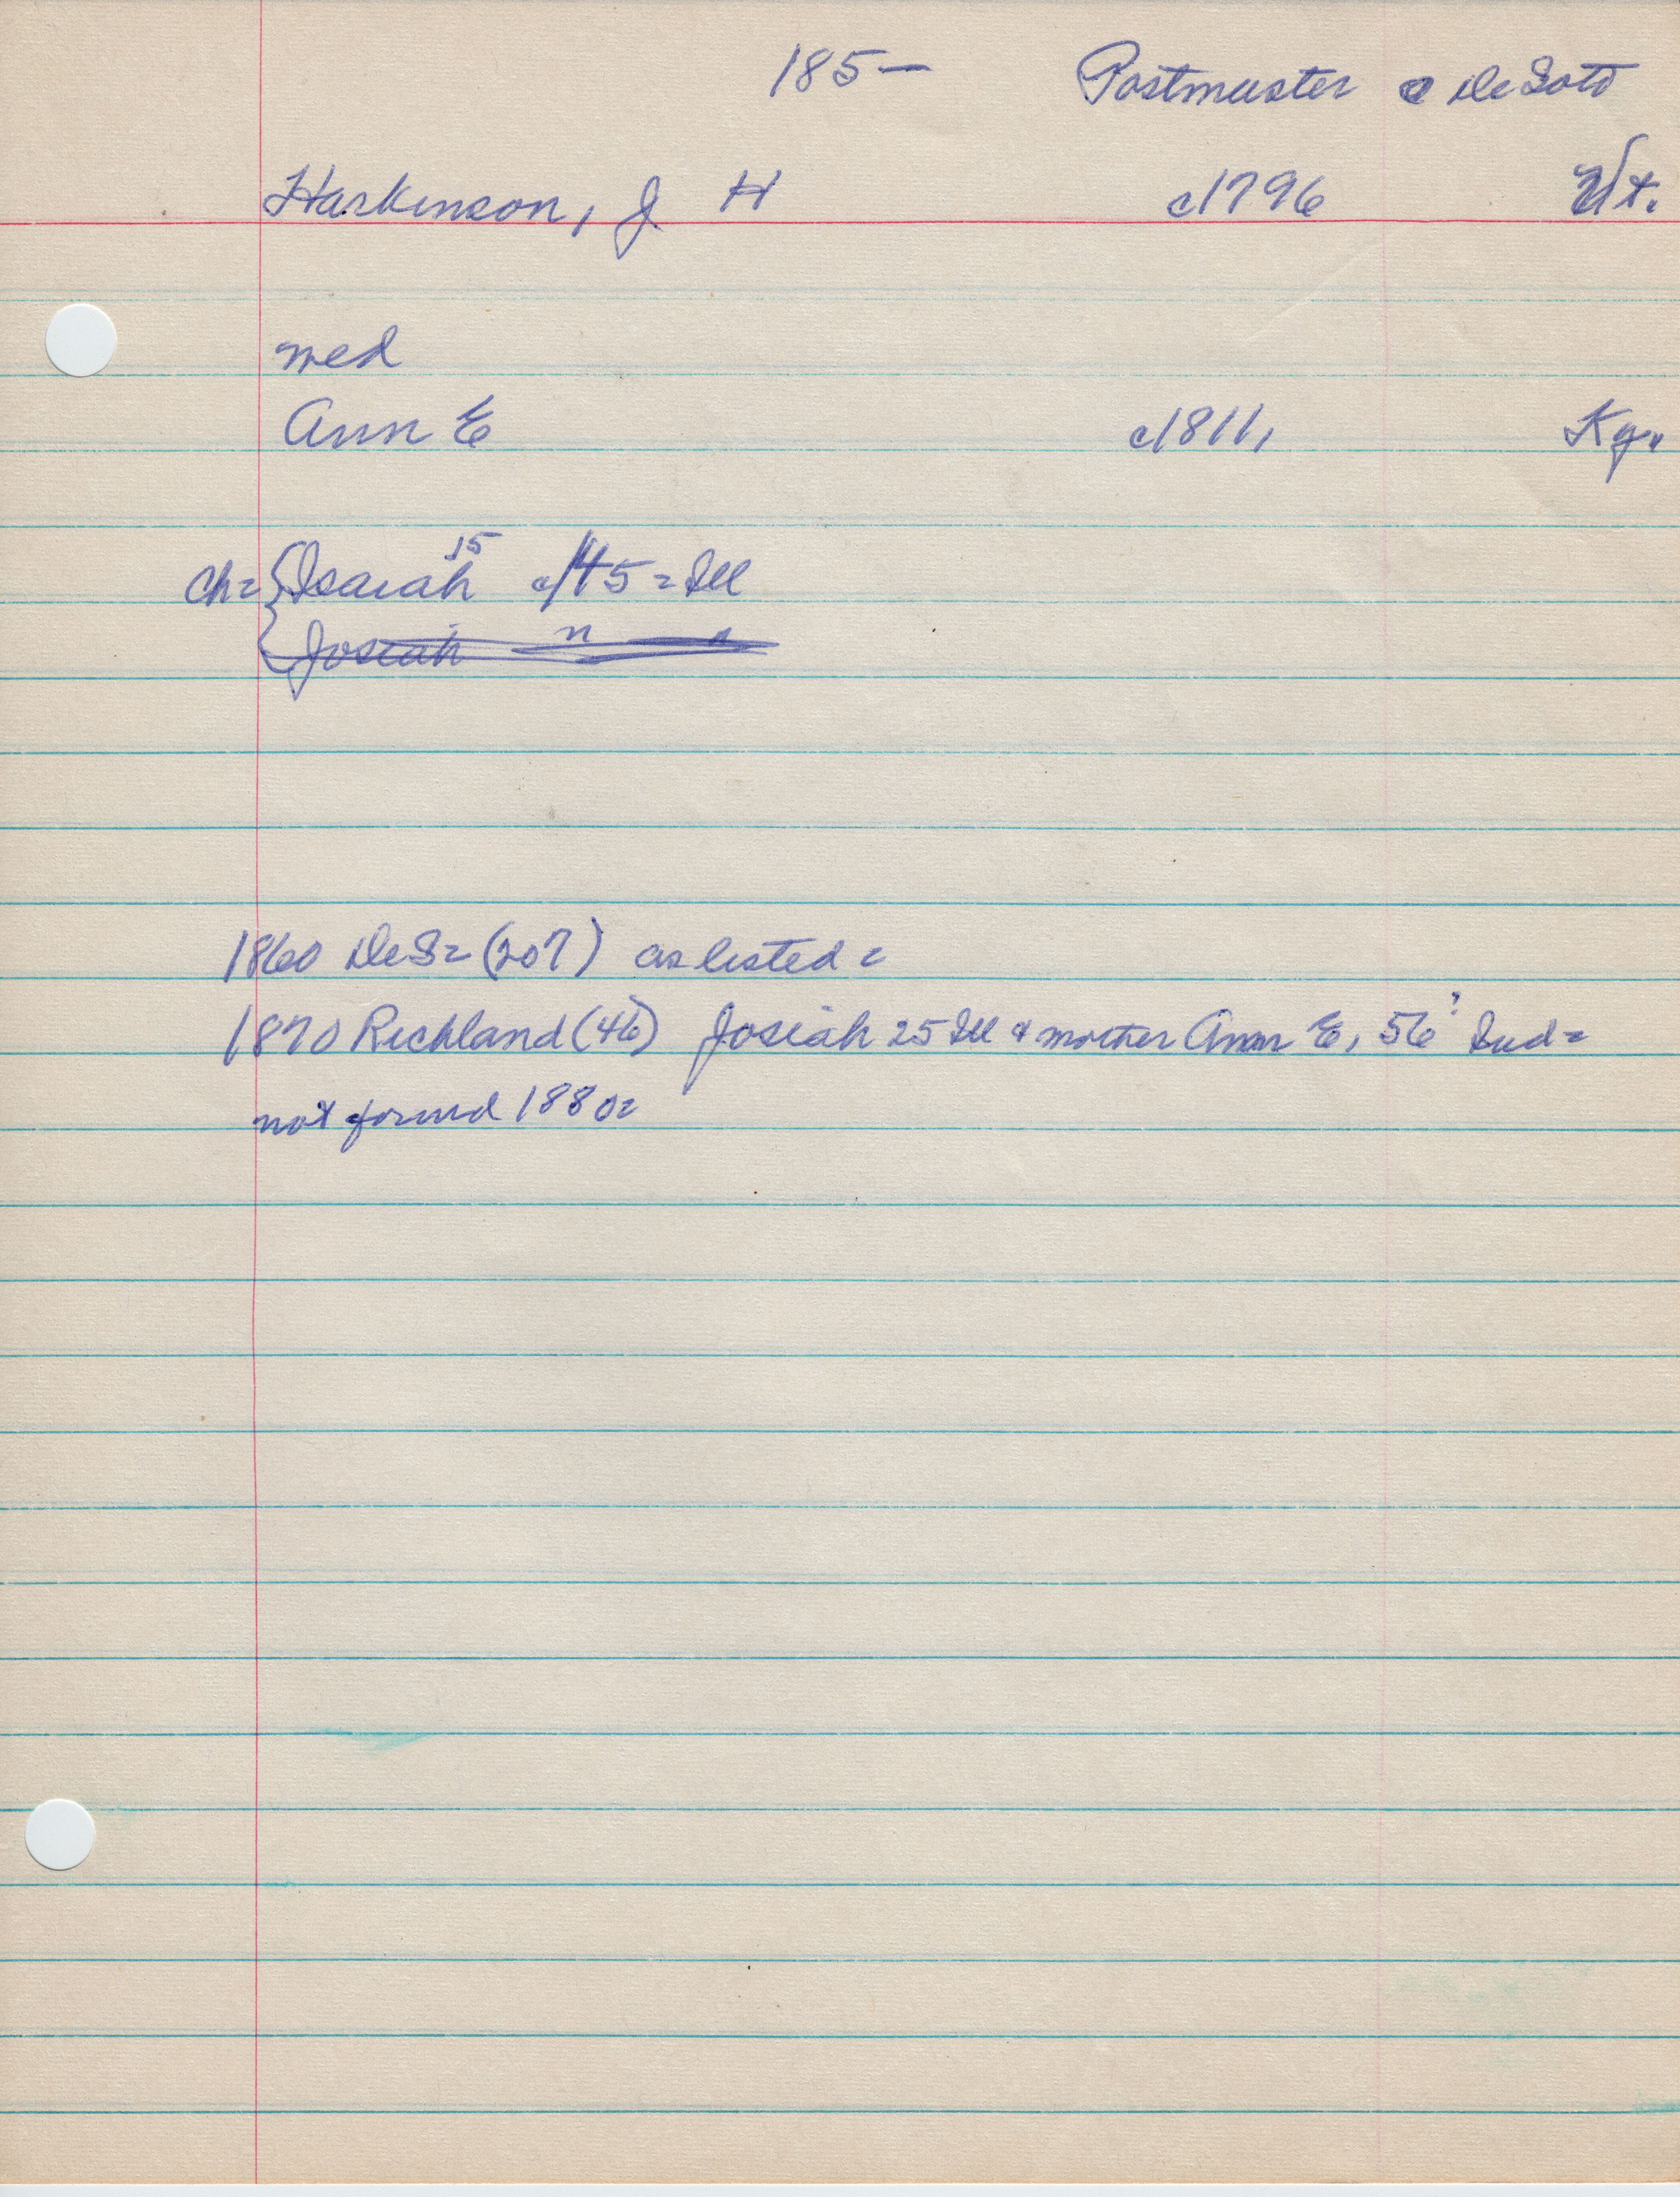 185— Postmaster @ DeSoto
Harkinson, J H c1796 Vt.
med
Ann E c1811, Ky.
ch= Isaiah 15 c/45 = Ill
Josiah " "
1860 DeS= (207) as listed =
1870 Richland (46) Josiah 25 Ill & mother Ann E, 56? Ind=
not found 1880=